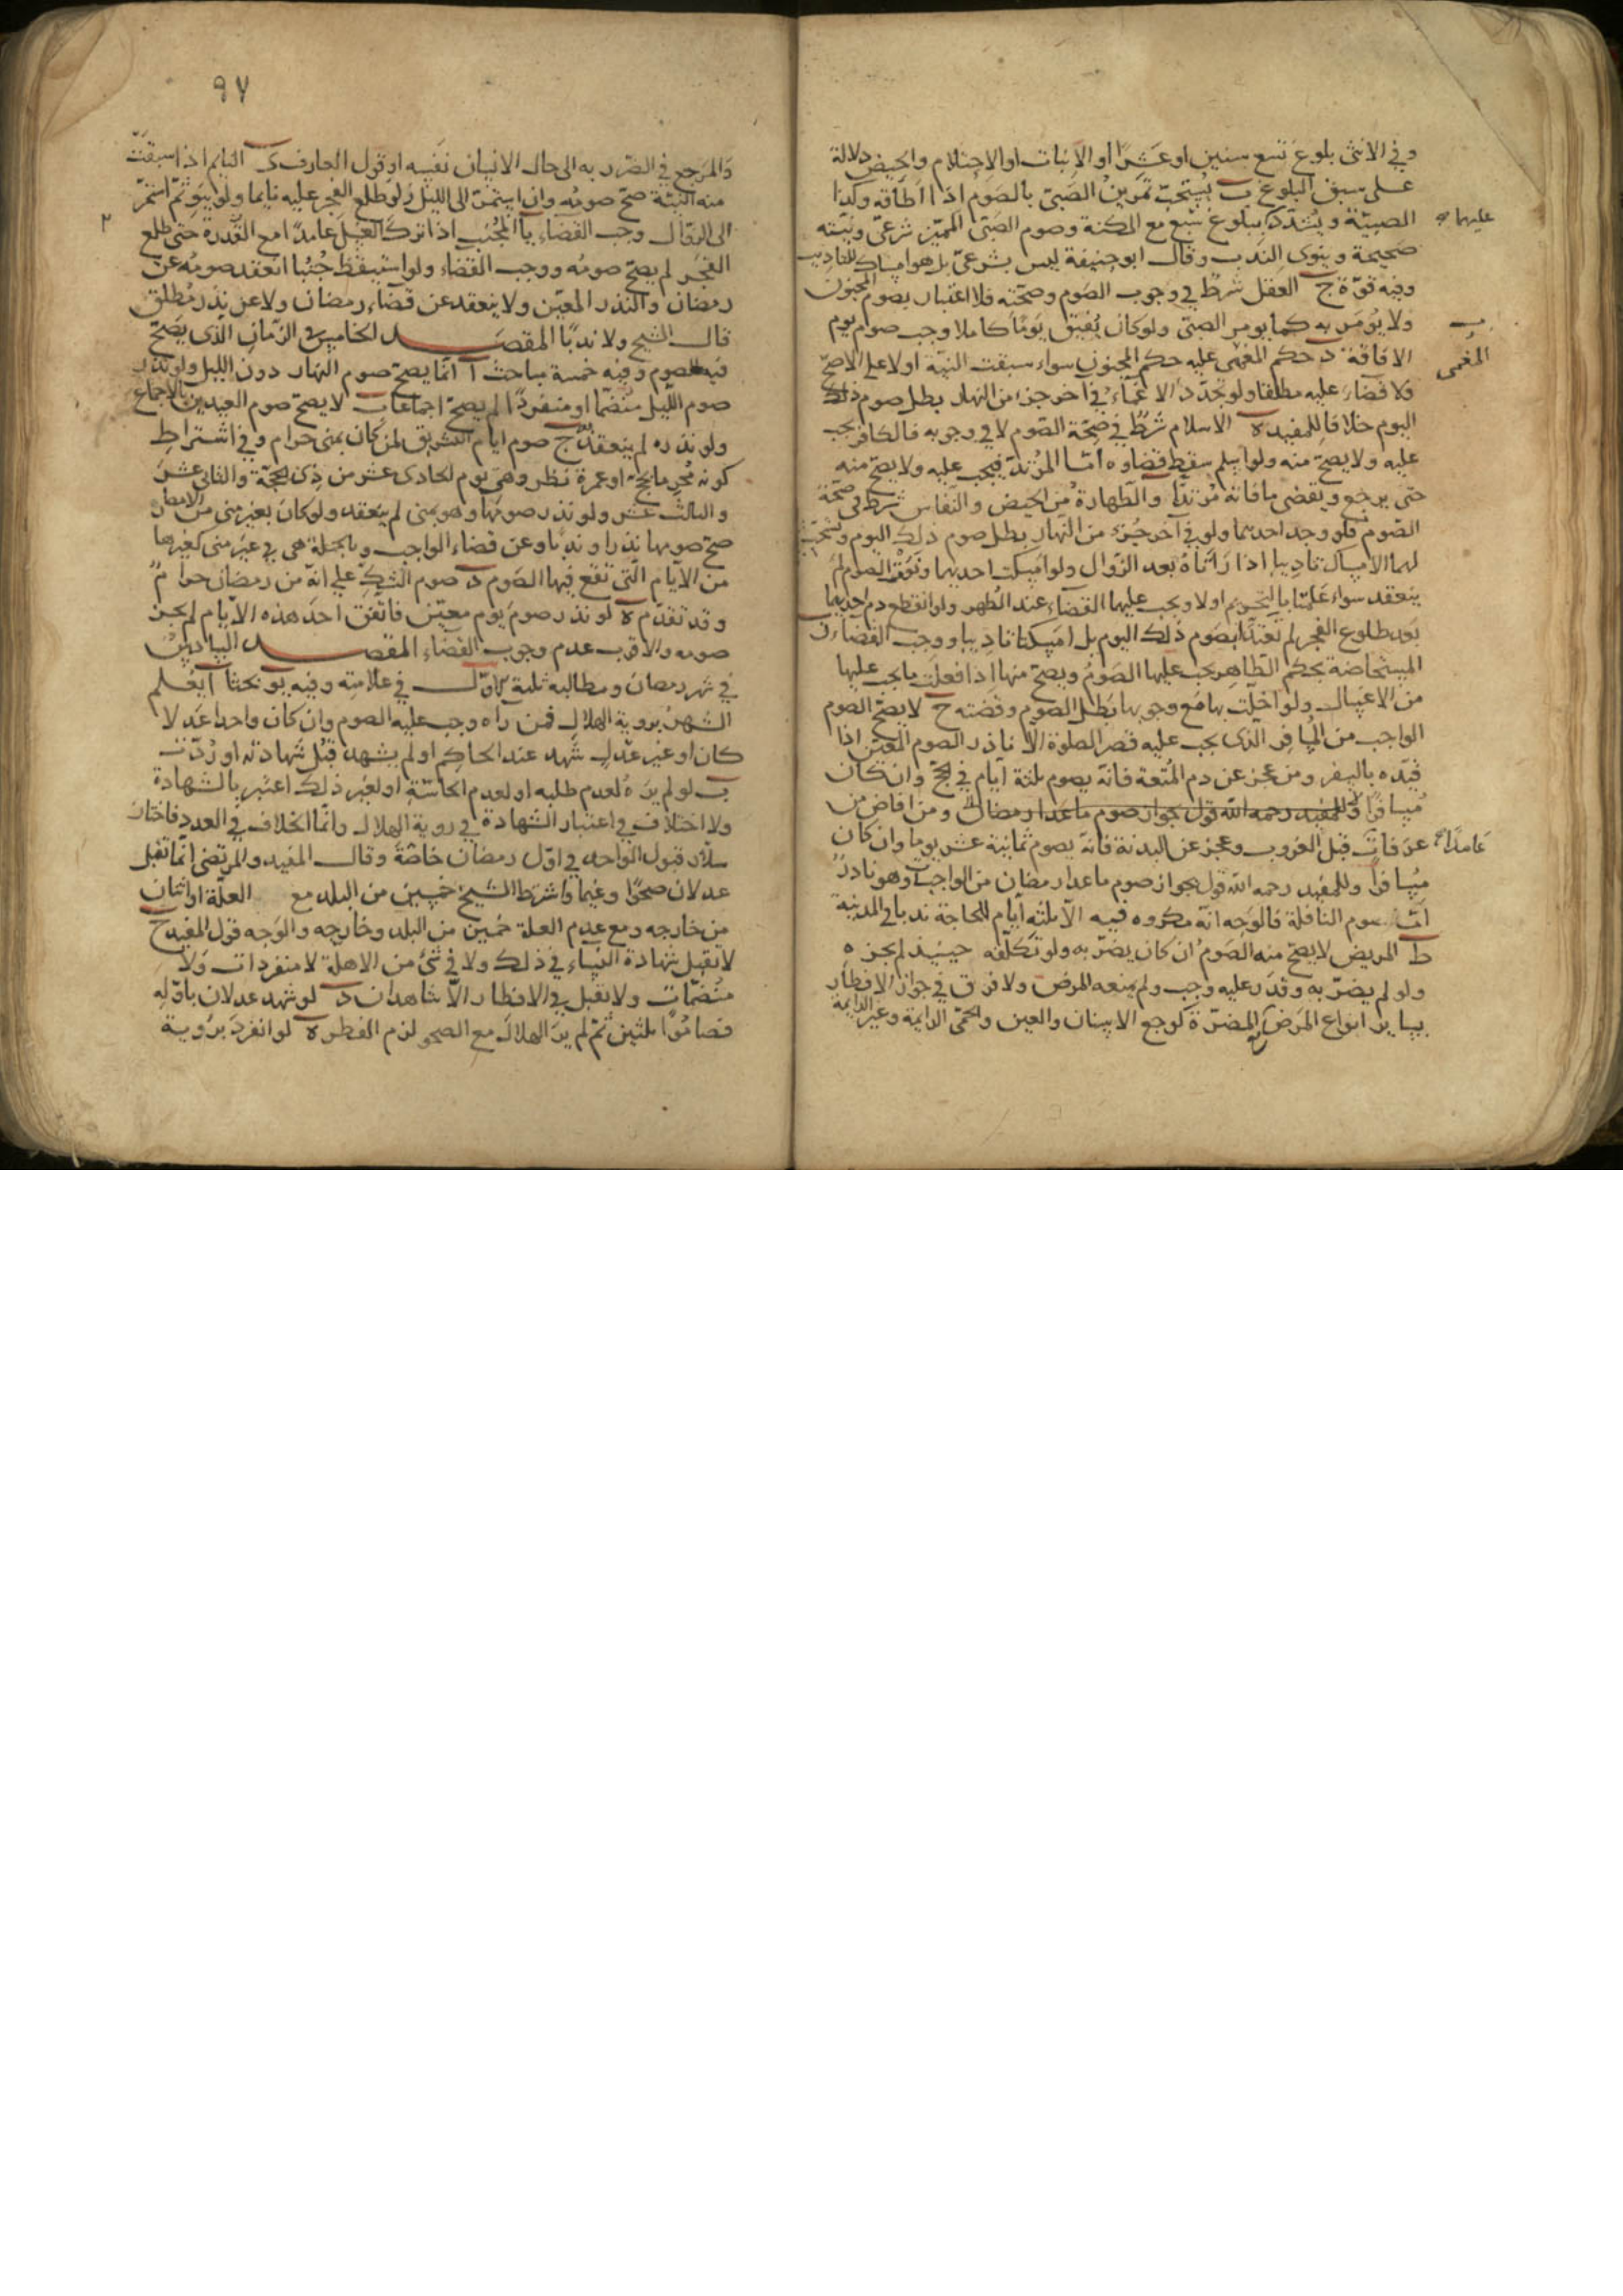 وفي الانثى بلوغ تسع سنين او عشرا او الانبات او الاحتلام والحيض دلالة
على سبق البلوغ ب يستحب تمرين الصبي بالصوم اذا اطاقه وكذا
الصبية ويشدد عليهما ببلوغ سبع مع المكنة وصوم الصبي المميز شرعي ونيته
صحيحة وينوى الندب وقال ابو حنيفة ليس بشرعي بل هو امساك للتاديب
وفيه قوة ج العقل شرط في وجوب الصوم وصحته فلا اعتبار بصوم المجنون
ولا يومر به كما يومر الصبي ولو كان يفيق يوما كاملا وجب صوم يوم
الافاقة د حكم المغمى عليه حكم المجنون سواء سبقت النية او لا على الاصح
فلا قضاء عليه مطلقا ولو تجدد الاغماء في اخر جزء من النهار بطل صوم ذلك
اليوم خلافا للمفيد ه الاسلام شرط في صحة الصوم لا في وجوبه فالكافر يجب
عليه ولا يصح منه ولو اسلم سقط قضاوه اما المرتد فيجب عليه ولا يصح منه
حتى يرجع ويقضى ما فاته مرتدا و الطهارة من الحيض والنفاس شرط في صحة
الصوم فلو وجد احدهما ولو في آخر جزء من النهار بطل صوم ذلك اليوم ويستحب
لهما الامساك تاديبا اذا راتاه بعد الزوال ولو امسكت احديهما ونوت الصوم لم
ينعقد سواء علمتا بالتحريم او لا ويجب عليهما القضاء عند الطهر ولو انقطع دم احديهما
بعد طلوع الفجر لم تعتدا بصوم ذلك اليوم بل امسكتا تاديبا ووجب القضاء ز
المستحاضة بحكم الطاهر يجب عليها الصوم ويصح منها اذا فعلت ما يجب عليها
من الاغسال ولو اخلت بها مع وجوبها بطل الصوم وقضته ح لا يصح الصوم
الواجب من المسافر الذى يجب عليه قصر الصلوة الا ناذر الصوم المعين اذا
قيده بالسفر ومن عجز عن دم المتعة فانه يصوم ثلثة ايام في الحج وان كان
مسافرا وللمفيد رحمه الله قول بجواز صوم ما عدا رمضان ومن افاض من
عرفات قبل الغروب عامدا وعجز عن البدنة فانه يصوم ثمانية عشر يوما وان كان
مسافرا وللمفيد رحمه الله قول بجواز صوم ما عدا رمضان من الواجبات وهو نادر
اما صوم النافلة فالوجه انه مكروه فيه الا ثلثه ايام للحاجة ندبا في المدينة
ط المريض لا يصح منه الصوم ان كان يضر به ولو تكلفه حينئذ لم يجزه
ولو لم يضر به وقدر عليه وجب ولم يمنعه المرض ولا فرق في جواز الافطار
بساير انواع المرض المضرة كوجع الاسنان والعين والحمى الدايمة وغير الدايمة
عليهما
المغمى
عامدا
٩٧
والمرجع في الضرر به الى حال الانسان نفسه او قول العارف ى النايم اذا سبقت
منه النية صح صومه وان استمر الى الليل ولو طلع الفجر عليه نايما ولم ينو ثم استمر
الى الزوال وجب القضاء يا المجنب اذا ترك الغسل عامدا مع القدرة حتى طلع
الفجر لم يصح صومه ووجب القضاء ولو استيقظ جنبا انعقد صومه عن
رمضان والنذر المعين ولا ينعقد عن قضاء رمضان ولا عن نذر مطلق
قال الشيخ ولا ندبا المقصد الخامس في الزمان الذى يصح
فيه الصوم وفيه خمسة مباحث آ انما يصح صوم النهار دون الليل ولو نذر
صوم الليل منضما او منفردا لم يصح اجماعا ب لا يصح صوم العيدين بالاجماع
ولو نذره لم ينعقد ج صوم ايام التشريق لمن كان بمنى حرام وفي اشتراط
كونه محرما بحجة او عمرة نظر وهي يوم الحادى عشر من ذى الحجة والثانى عشر
والثالث عشر ولو نذر صومها وهو بمنى لم ينعقد ولو كان بغير منى من الامصار
صح صومها نذرا وندبا وعن قضاء الواجب وبالجملة هي في غير منى كغيرها
من الايام التى تقع فيها الصوم د صوم الشك على انه من رمضان حرام
وقد تقدم ه لو نذر صوم يوم معين فاتفق احد هذه الايام لم يجز
صومه والاقرب عدم وجوب القضاء المقصد السادس
في شهر رمضان ومطالبه ثلثة الاول في علامته وفيه يو بحثا آ يعلم
الشهر بروية الهلال فمن راه وجب عليه الصوم وان كان واحدا عدلا
كان او غير عدل شهد عند الحاكم او لم يشهد قبل شهادته او ردت
ب لو لم يره لعدم طلبه او لعدم الحاسة او لغير ذلك اعتبر بالشهادة
ولا اختلاف في اعتبار الشهادة في روية الهلال وانما الخلاف في العدد فاختار
سلار قبول الواحد في اول رمضان خاصة وقال المفيد والمرتضى انما تقبل
عدلان صحوا وغيما واشترط الشيخ خمسين من البلد مع العلة او اثنان
من خارجه ومع عدم العلة خمسين من البلد وخارجه والوجه قول المفيد ج
لا تقبل شهادة النساء في ذلك ولا في شئ من الاهلة لا منفردات ولا
منضمات ولا تقبل في الافطار الا شاهدان د لو شهد عدلان باوله
فصاموا ثلثين ثم لم ير الهلال مع الصحو لزم الفطر ه لو انفرد بروية